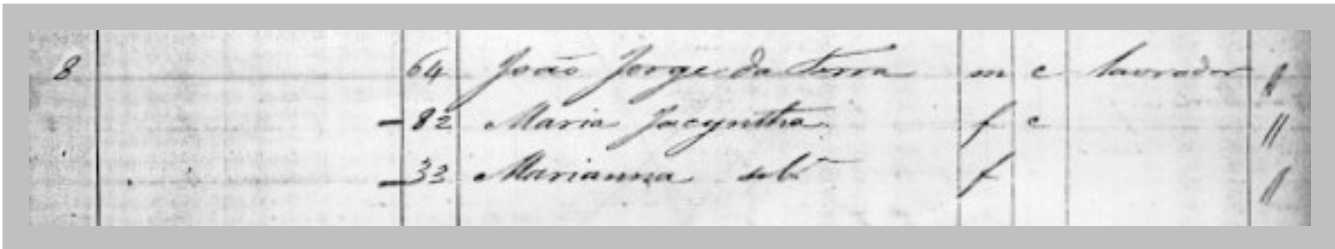 8 64 João Jorge da Terra m c lavrador "
82 Maria Jacyntha f c "
33 Marianna f "